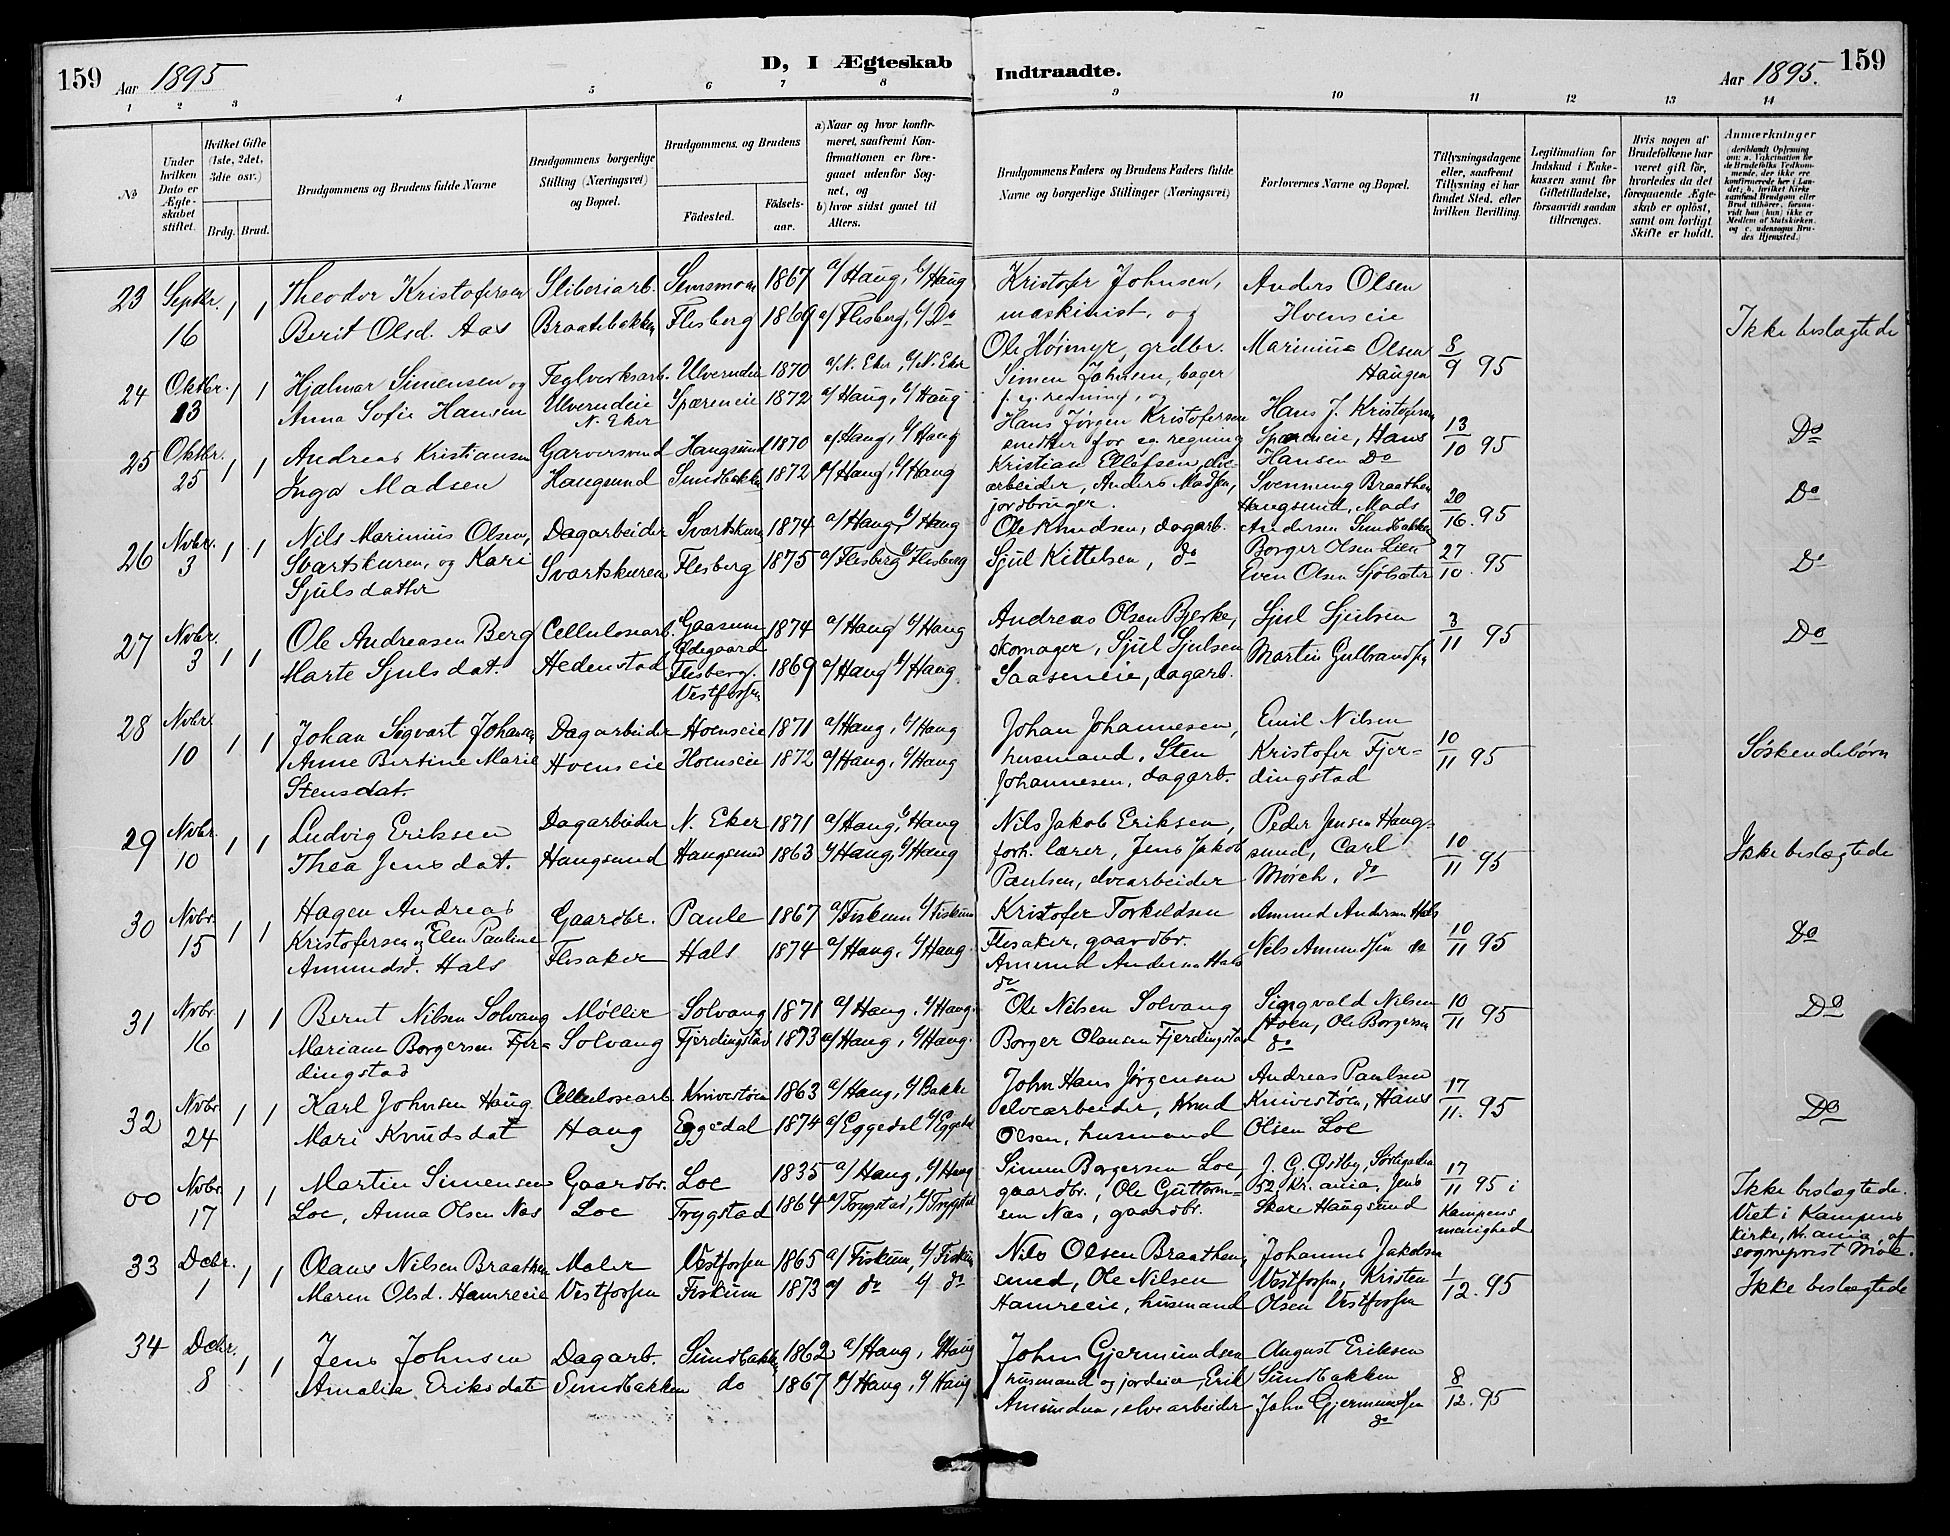 159 Aar 1895 D, I Ægteskab
Indtraadte. Aar 1895. 159
1 2 3 4 5 6 7 8
9 10 11 12 13 14
No
Under hvilken Dato er Ægteskabet stiftet.
Hvilket Gifte (1ste, 2det, 3die osv.)
Brdg. Brud.
Brudgommens og Brudens fulde Navne
Brudgommens borgerlige Stilling (Næringsvei) og Bopæl.
Brudgommens og Brudens
Fødested.
Fødselsaar.
a) Naar og hvor konfirmeret, saafremt Konfirmationen er foregaaet udenfor Sognet, og
b) hvor sidst gaaet til Alters.
Brudgommens Faders og Brudens Faders fulde Navne og borgerlige Stillinger (Næringsvei)
Forlovernes Navne og Bopæl.
Tillysningsdagene eller, saafremt Tillysning ei har fundet Sted, efter hvilken Bevilling.
Legitimation for Indskud i Enkekassen samt for Giftetilladelse, forsaavidt saadan tiltrænges.
Hvis nogen af Brudefolkene har været gift før, hvorledes da det foregaaende Ægteskab er opløst, samt om lovligt Skifte er holdt.
Anmærkninger
(deriblandt Oplysning om: a. Vakcination for de Brudefolks Vedkommende, der ikke ere konfirmerede her i Landet; b. hvilket Kirkesamfund Brudgom eller Brud tilhører, forsaavidt han (hun) ikke er Medlem af Statskirken, og c. udensogns Brudes Hjemsted.)
23 Septbr. 1 1 Theodor Kristofersen Sliberiarb. 1867 a/ Haug, b/ Haug Kristofer Johnsen, Anders Olsen
16 Berit Olsd. Aas Braatebakken Flesberg 1869 a/ Flesberg, b/ Do maskinist, og Hoenseie Ikke beslægtede
Ole Høimyr, grdbr. Marinius Olsen 8/9 95
24 Oktbr. 1 1 Hjalmar Simensen og Teglverksarb. Ulverudeie 1870 a/ N. Eker, b/ N. Eker Simen Johnsen, bager Haugen
13 Anna Sofie Hansen Ulverudeie Spæreneie 1872 a/ Haug, b/ Haug f. eg. regning, og
N. Eker Hans Jørgen Kristofersen Hans J. Kristofersen 13/10 95 Do
25 Oktbr. 1 1 Andreas Kristiansen Garversvend Haugsund 1870 a/ Haug, b/ Haug smed for eg. regning Spæreneie, Hans
25 Inga Madsen Haugsund Sundbakken 1872 a/ Haug, b/ Haug Kristian Ellefsen, elvearbeider, Anders Madsen, Hansen Do
jordbruger. Svenning Braathen Haugsund, Mads 20/16. 95 Do
26 Novbr. 1 1 Nils Marinius Olsen, Dagarbeider Svartskuren 1874 a/ Haug, b/ Haug Ole Knudsen, dagarb. Andersen Sundbakken
3 Svartskuren, og Kari Svartskuren Flesberg 1875 a/ Flesberg b/ Flesberg Sjul Kittelsen, do Borger Olsen Lien 27/10. 95 Do
Sjulsdatter Even Olsen
27 Novbr. 1 1 Ole Andreasen Berg Cellulosearb. Gaasum Ødegaard 1874 a/ Haug b/ Haug Andreas Olsen Bjerke, Sjul Sjulsen 3/11 95 Do
3 Marte Sjulsdat. Hedenstad Flesberg. Vestfossen 1869 a/ Haug b/ Haug skomager, Sjul Sjulsen Martin Gulbrandsen
Saaseneie, dagarb.
28 Novbr. 1 1 Johan Sigvart Johansen Dagarbeider Hoenseie 1871 a/ Haug, b/ Haug Johan Johannesen, Emil Nilsen 10/11 95
10 Anne Bertine Marie Hoenseie Hoenseie 1872 a/ Haug, b/ Haug husmand, Sten Kristofer Fjer- Søskendebørn
Stensdat. Johannesen, dagarb. dingstad
29 Novbr. 1 1 Ludvig Eriksen Dagarbeider N. Eker 1871 a/ Haug, b/ Haug Nils Jakob Eriksen, Peder Jensen Haug-
10 Thea Jensdat. Haugsund Haugsund 1863 a/ Haug, b/ Haug forh. lærer, Jens Jakob sund, Carl 10/11 95 Ikke beslægtede
Paulsen, elvearbeider Mørch, do
30 Novbr. 1 1 Hagen Andreas Gaardbr. Paule 1867 a/ Fiskum b/ Fiskum Kristofer Torkildsen Amund Andersen Hals 10/11 95 Do
15 Kristofersen og Elen Pauline Flesaker Hals 1874 a/ Haug, b/ Haug. Flesaker, gaardbr. Nils Amundsen do
Amundsd. Hals Amund Andersen Hals do
31 Novbr. 1 1 Bernt Nilsen Solvang Møller Solvang 1871 a/ Haug, b/ Haug. Ole Nilsen Solvang Sigvald Nilsen 10/11 95 Do
16 Mariane Borgersen Fjer- Solvang Fjerdingstad 1873 a/ Haug, b/ Haug. Borger Olausen Fjerdingstad Hoen, Ole Borgersen do
dingstad
32 Novbr. 1 1 Karl Johnsen Haug Cellulosearb. Knivestøen 1863 a/ Haug, b/ Bakke John Hans Jørgensen Andreas Paulsen 17/11. 95 Do
24 Mari Knudsdat Haug Eggedal 1874 a/ Eggedal b/ Eggedal elvearbeider, Knud Knivestøen, Hans
Olsen, husmand Olsen Loe
00 Novbr. 1 1 Martin Simensen Gaardbr. Loe 1835 a/ Haug, b/ Haug Simen Borgersen Loe, J. G. Østby, 17/11 95 i Ikke beslægtede.
17 Loe, Anna Olsen Næs Loe Trygstad 1864 a/ Trygstad, b/ Trygstad gaardbr., Ole Guttorm- 52, Kr.ania, Jens Kampens Viet i Kampens
sen Næs, gaardbr. Skare Haugsund menighed kirke, Kr.ania, af
sogneprest Moe.
33 Decbr. 1 1 Olaus Nilsen Braathen Maler Vestfossen 1865 a/ Fiskum, b/ Fiskum Nils Olsen Braathen, Johannes Jakobsen 1/12. 95 Ikke beslægtede
1 Maren Olsd. Hamreeie Vestfossen Fiskum 1873 a/ do b/ do smed, Ole Nilsen Vestfossen, Kristen
Hamreeie, husmand Olsen Vestfossen
34 Decbr. 1 1 Jens Johnsen Dagarb. Sundbakken 1862 a/ Haug, b/ Haug John Gjermundsen August Eriksen
8 Amalie Eriksdat Sundbakken do 1867 a/ Haug, b/ Haug husmand og jordeier, Erik Sundbakken 8/12. 95
Amundsen, elvearbeider John Gjermundsen do